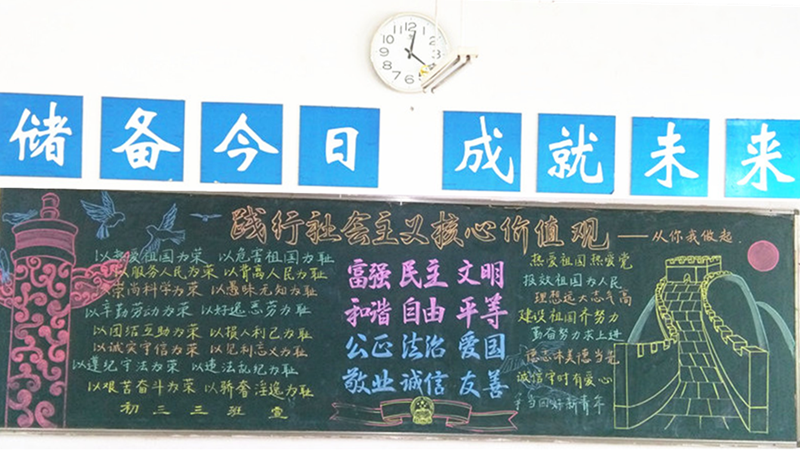 11 12 1
10 2
9
8
7 6
储备今日 成就未来
践行社会主义核心价值观——从你我做起
以热爱祖国为荣 以危害祖国为耻
以服务人民为荣 以背离人民为耻
以崇尚科学为荣 以愚昧无知为耻
以辛勤劳动为荣 以好逸恶劳为耻
以团结互助为荣 以损人利己为耻
以诚实守信为荣 以见利忘义为耻
以遵纪守法为荣 以违法乱纪为耻
以艰苦奋斗为荣 以骄奢淫逸为耻
初三三班宣
富强 民主 文明
和谐 自由 平等
公正 法治 爱国
敬业 诚信 友善
热爱祖国热爱党
报效祖国为人民
理想远大志气高
建设祖国齐努力
勤奋努力求上进
诚信守时有爱心
争当四好新青年